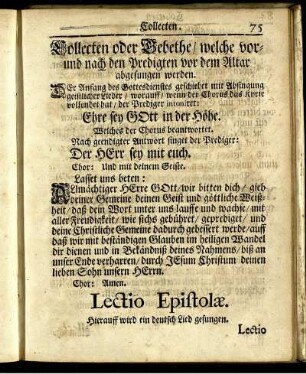 Collecten. 75
Collecten oder Gebethe / welche vor-
und nach den Predigten vor dem Altar
abgesungen werden.
DEr Anfang des Gottesdienstes geschiehet mit Absingung
geistlicher Lieder / worauff / wenn der Chorus das Kyrie
vollendet hat / der Prediger intoniret:
Ehre sey GOtt in der Höhe.
Welches der Chorus beantwortet.
Nach geendigter Antwort singet der Prediger:
Der HErr sey mit euch.
Chor: Und mit deinem Geiste.
Lasset uns beten:
ALmächtiger HErre GOtt / wir bitten dich / gieb
deiner Gemeine deinen Geist und göttliche Weiß-
heit / daß dein Wort unter uns lauffe und wachse / mit
aller Freudigkeit / wie sichs gebühret / geprediget / und
deine Christliche Gemeine dadurch gebessert werde / auff
daß wir mit beständigen Glauben im heiligen Wandel
dir dienen und in Bekändnüß deines Nahmens / biß an
unser Ende verharren / durch JEsum Christum deinen
lieben Sohn unsern HErrn.
Chor: Amen.
Lectio Epistolæ.
Hierauff wird ein deutsch Lied gesungen.
Lectio